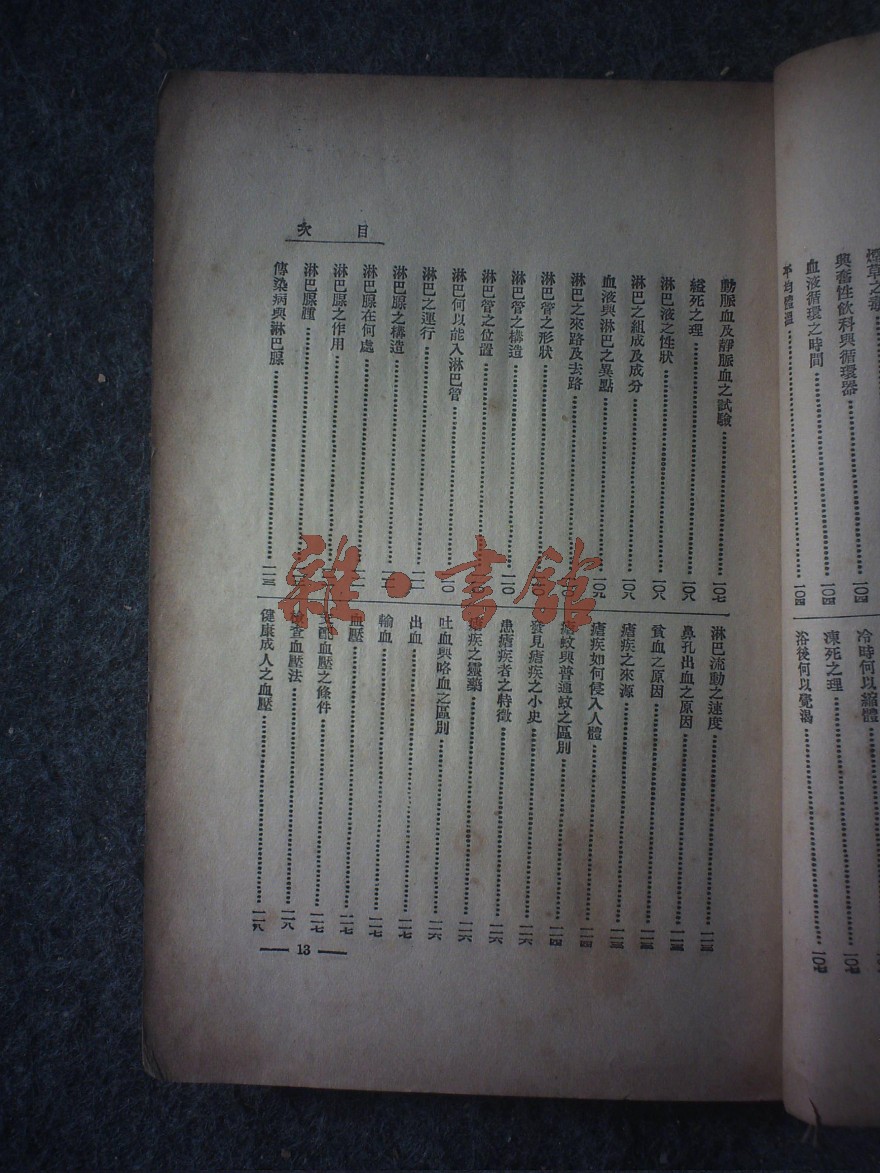 煙草之毒
興奮性飲料與循環器……一〇四
血液循環之時間……一〇四
平均體溫……一〇四
冷時何以縮體
凍死之理……一〇七
浴後何以覺渴……一〇七
目次
動脈血及靜脈血之試驗……一〇七
縊死之理……一〇八
淋巴液之性狀……一〇八
淋巴之組成及成分……一〇八
血液與淋巴之異點……一〇九
淋巴之來路及去路
淋巴管之形狀
淋巴管之構造……一一〇
淋巴管之位置
淋巴何以能入淋巴管……一一〇
淋巴之運行……一一一
淋巴腺之構造
淋巴腺在何處
淋巴腺之作用
淋巴腺腫
傳染病與淋巴腺……一一三
淋巴流動之速度……一一三
鼻孔出血之原因……一一三
貧血之原因……一一三
瘧疾之來源……一一三
瘧疾如何侵入人體……一一四
瘧蚊與普通蚊之區別……一一四
發見瘧疾之小史……一一六
患瘧疾者之特徵……一一六
瘧疾之靈藥……一一六
吐血與咯血之區別……一一六
出血……一一七
輸血……一一七
血壓……一一七
支配血壓之條件……一一七
檢查血壓法……一一八
健康成人之血壓……一一八
13
雜·書館